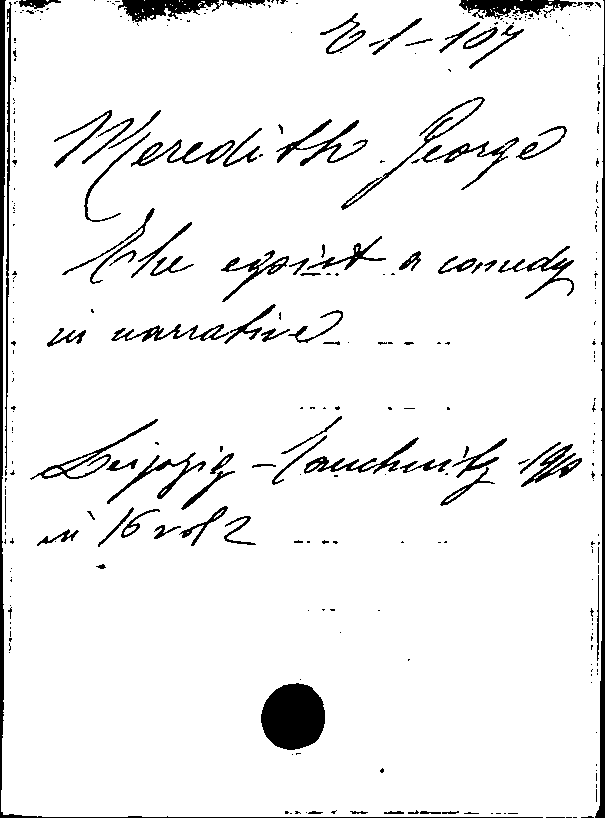 E 1-107
Meredith George
The egoist a comedy
in narrative
Leipzig - Tauchnitz
in 16 vol 2